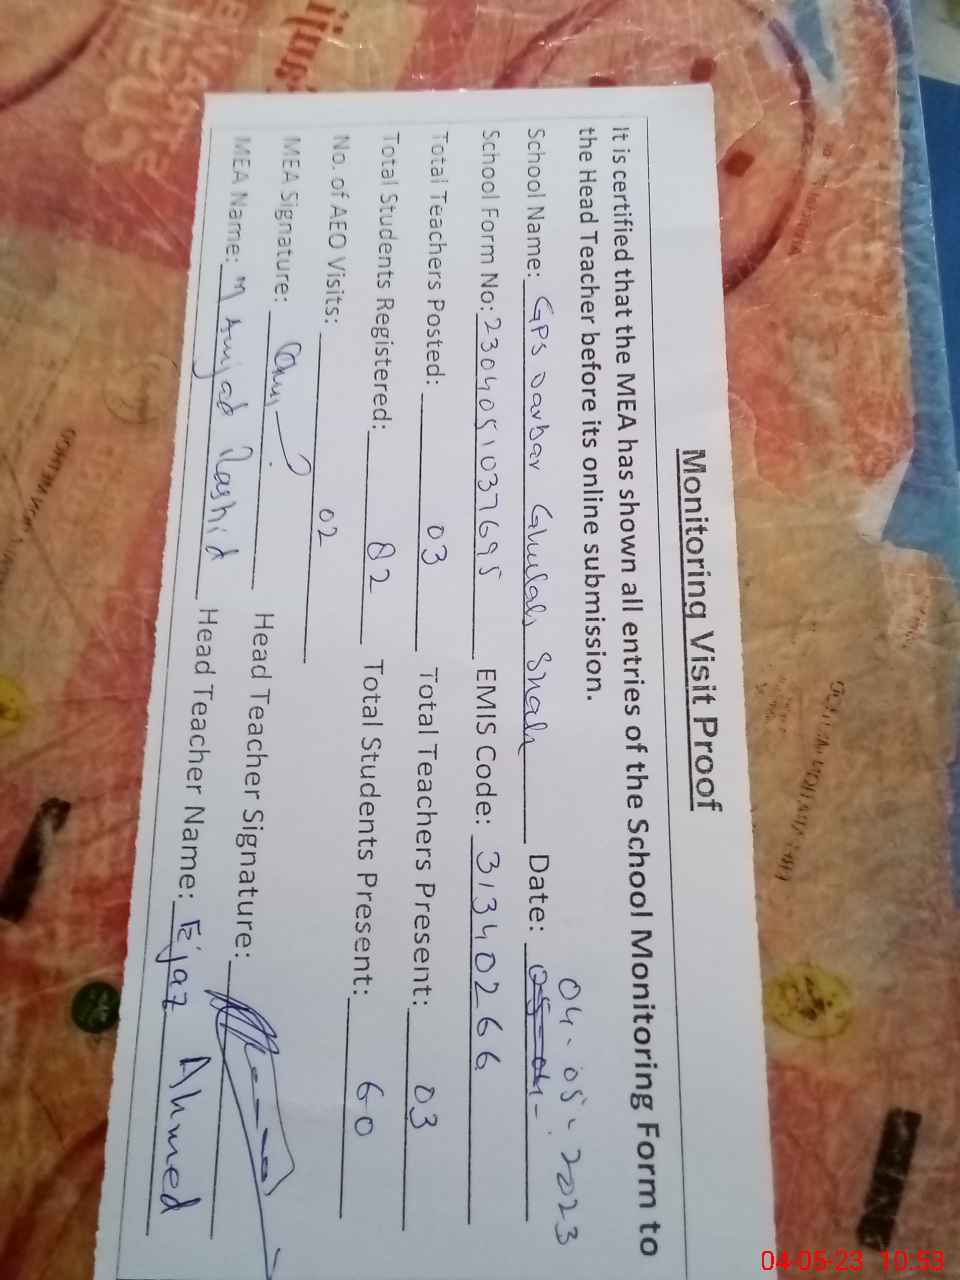 Monitoring Visit Proof
It is certified that the MEA has shown all entries of the School Monitoring Form to
the Head Teacher before its online submission.
School Name: GPS Darbar Ghulab Shah Date: 04-05-2023
School Form No: 2304051037695 EMIS Code: 31340266
Total Teachers Posted: 03 Total Teachers Present: 03
Total Students Registered: 82 Total Students Present: 60
No. of AEO Visits: 02
MEA Signature: Head Teacher Signature:
MEA Name: M Amjad Rashid Head Teacher Name: Ejaz Ahmed
04-05-23 10:53